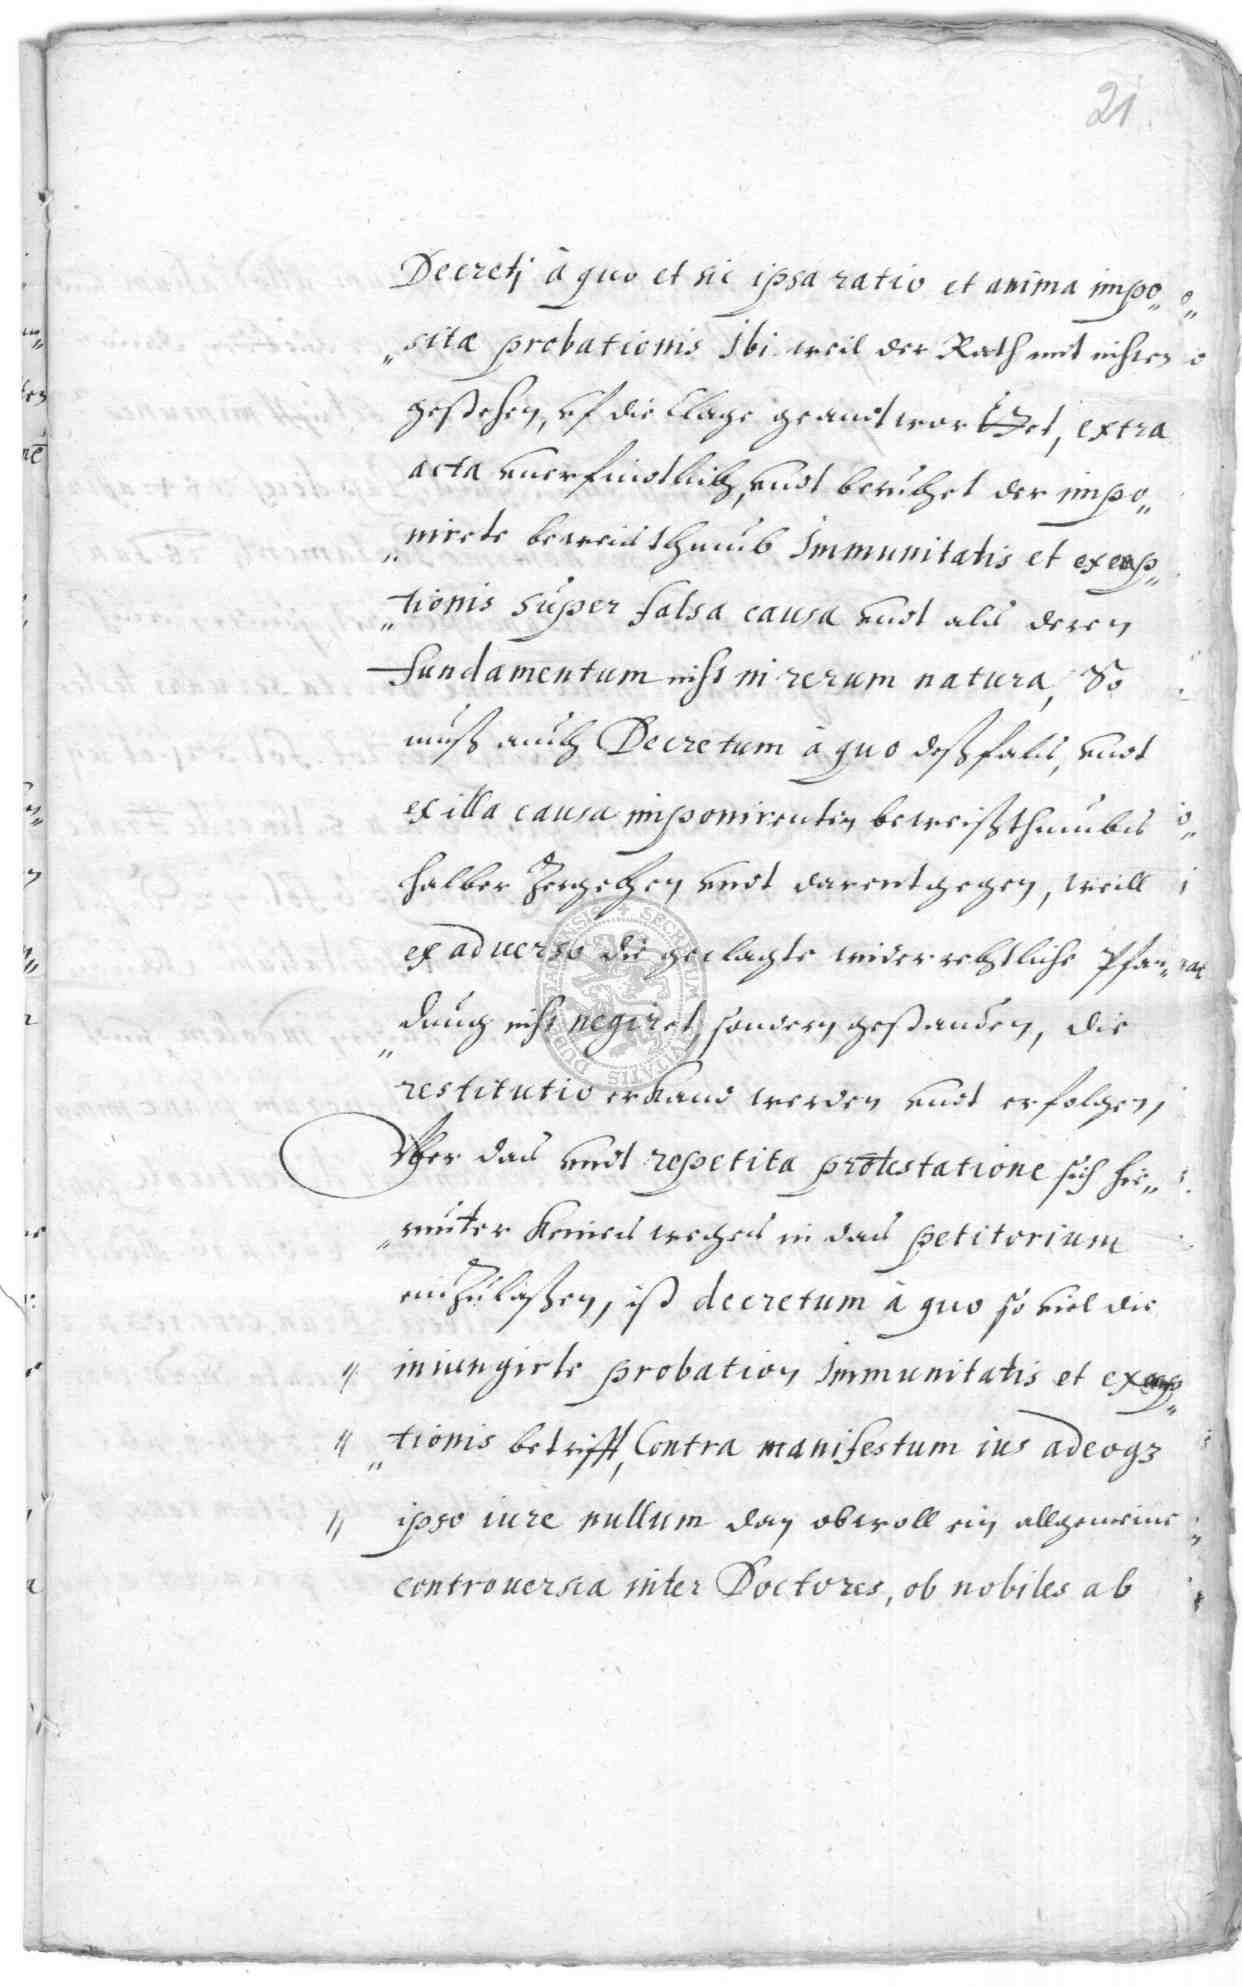 21
Decretj à quo et sic ipsa ratio et anima impo„
„sitæ probationis Ibi weil der Rath mit nichten
gestehen, vf die Clage geandtworttet, extra
acta vnerfindtlich, vndt beruhet der impo„
„nirte beweisthumb Immunitatis et exemp„
„tionis super falsa causa vndt als deren
fundamentum nicht in rerum natura, So
muß auch Decretum à quo deßfals, vndt
ex illa causa imponirenten beweißthumbs
halber Zergehen vndt darentgegen, weill
ex aduerso die geclagte widerrechtliche Pfan„
„dung nicht negiret, sondern gestanden, die
restitutio erkand werden vndt erfolgen,
Vber das vndt repetita protestatione sich hie„
„runter keines weges in das petitorium
einzulaßen, ist decretum à quo so viel die
iniungirte probation Immunitatis et exemp„
„tionis betrifft, Contra manifestum ius adeoqз
ipso iure nullum dan obwoll ein allgemeine
controuersia inter Doctores, ob nobiles ab